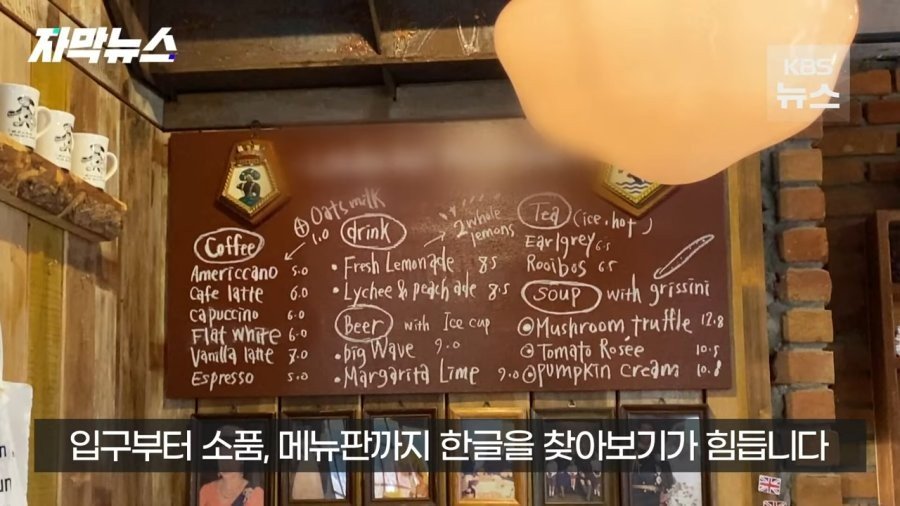 자막뉴스
KBS
뉴스
⊕ Oatsmilk
1.0
Coffee
Americcano 5.0
Cafe latte 6.0
Capuccino 6.0
Flat white 6.0
Vanilla latte 7.0
Espresso 5.0
drink
2 whole
lemons
• Fresh Lemonade 8.5
• Lychee & peach ade 8.5
Beer with Ice cup
• Big Wave 9.0
• Margarita Lime 9.0
Tea (ice, hot)
Earlgrey 6.5
Rooibos 6.5
Soup with grissini
Mushroom truffle 12.8
Tomato Rosée 10.5
Pumpkin cream 10.8
입구부터 소품, 메뉴판까지 한글을 찾아보기가 힘듭니다